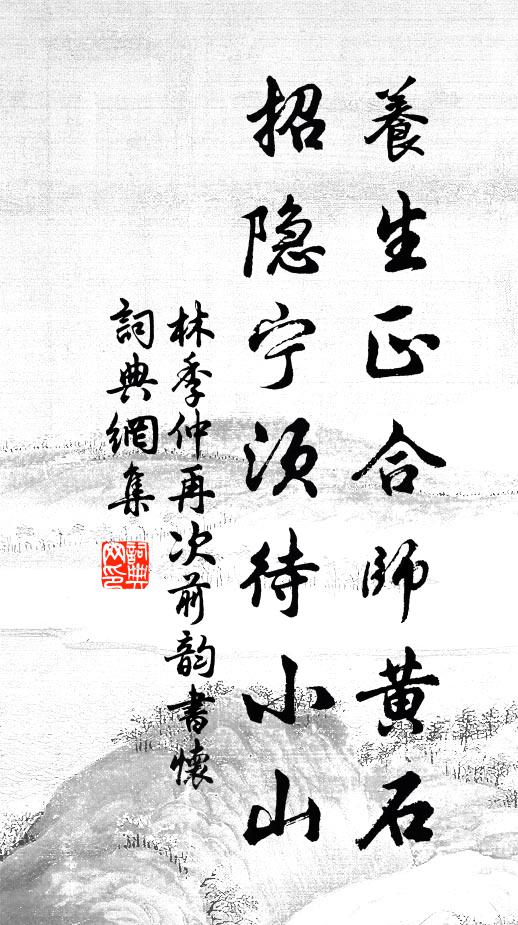 養生正合師黄石
招隐宁须待小山
林季仲再次前韵書懷
詞典網集
詞典網印